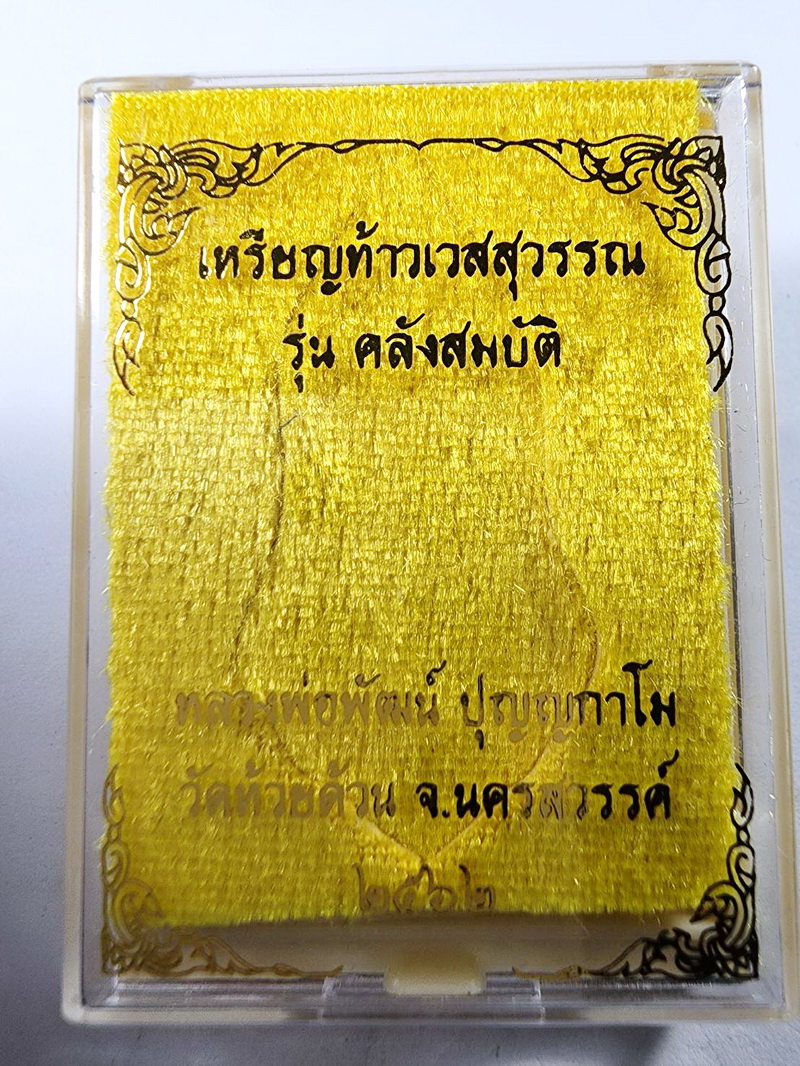 เหรียญท้าวเวสสุวรรณ
รุ่น คลังสมบัติ
หลวงพ่อพัฒน์ ปุญญกาโม
วัดห้วยด้วน จ.นครสวรรค์
๒๕๖๒